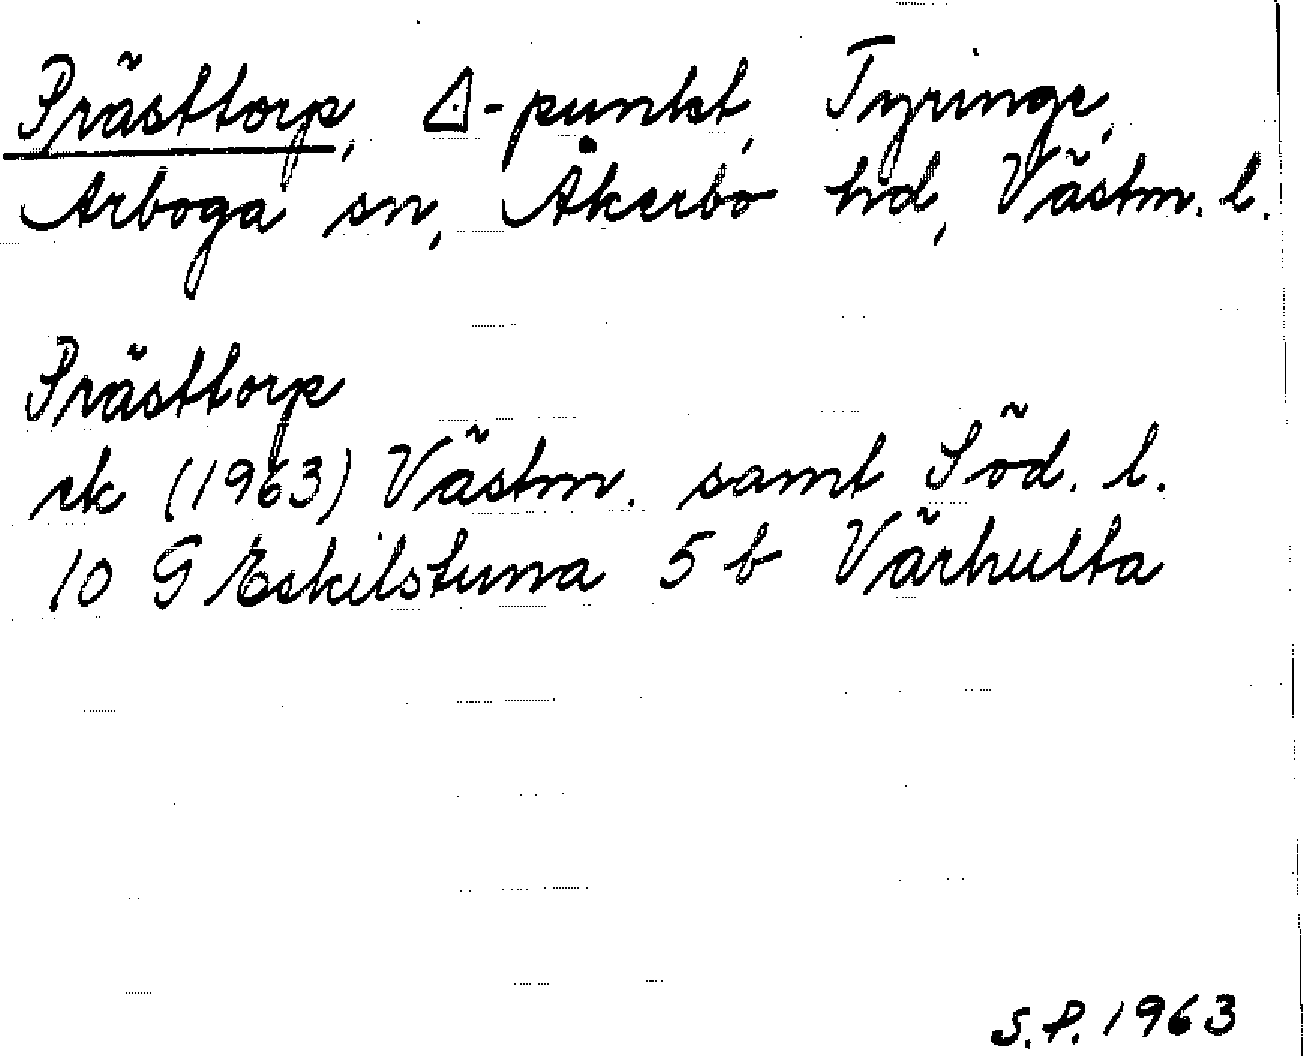 Prästtorp, △-punkt, Tyringe,
Arboga sn, Åkerbo hd, Västm. l.
Prästtorp
ek (1963) Västm. samt Söd. l.
10 G Eskilstuna 5 b Värhulta
S.P. 1963